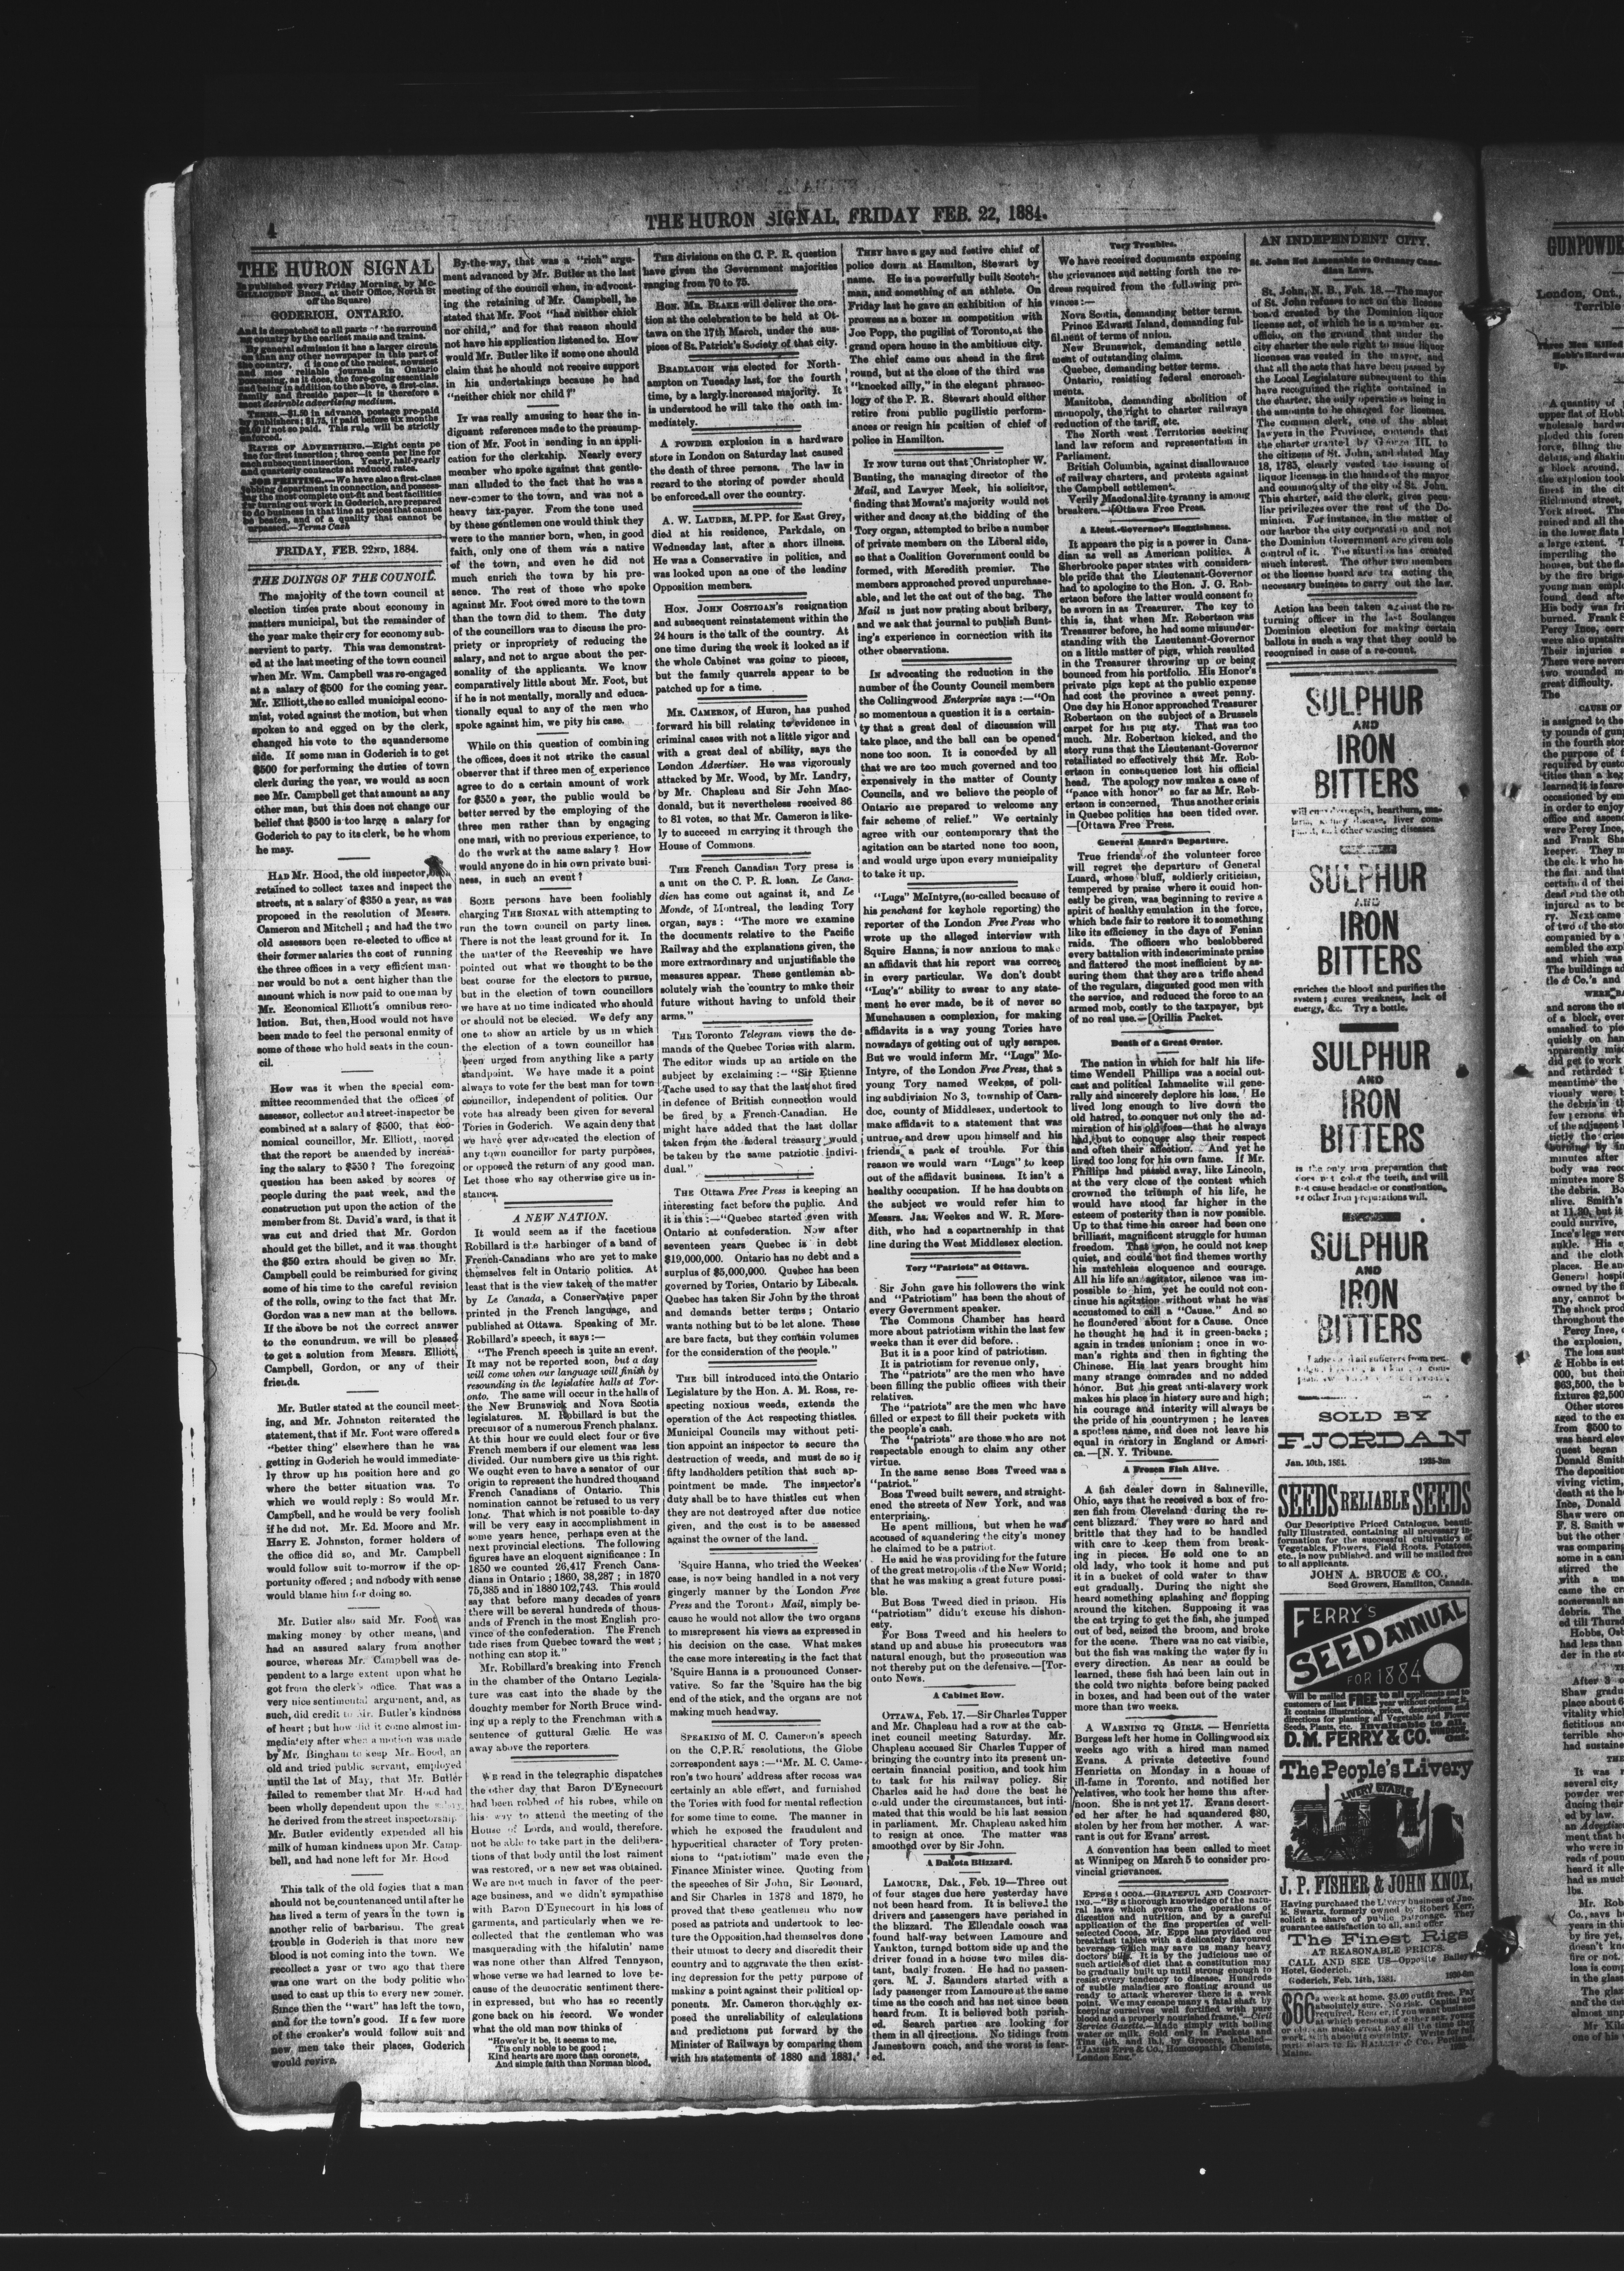 4
THE HURON SIGNAL, FRIDAY FEB. 22, 1884.
THE HURON SIGNAL
Is published every Friday Morning, by Mc-
GILLICUDDY BROS., at their Office, North St
off the Square)
GODERICH, ONTARIO.
And is despatched to all parts of the surround
ing country by the earliest mails and trains.
FRIDAY, FEB. 22ND, 1884.
THE DOINGS OF THE COUNCIL.
The majority of the town council at
election times prate about economy in
matters municipal, but the remainder of
the year make their cry for economy sub-
servient to party. This was demonstrat-
ed at the last meeting of the town council
when Mr. Wm. Campbell was re-engaged
at a salary of $500 for the coming year.
Mr. Elliott, the so called municipal econo-
mist, voted against the motion, but when
spoken to and egged on by the clerk,
changed his vote to the squandersome
side. If some man in Goderich is to get
$500 for performing the duties of town
clerk during the year, we would as soon
see Mr. Campbell get that amount as any
other man, but this does not change our
belief that $500 is too large a salary for
Goderich to pay to its clerk, be he whom
he may.
HAD Mr. Hood, the old inspector,
retained to collect taxes and inspect the
streets, at a salary of $350 a year, as was
proposed in the resolution of Messrs.
Cameron and Mitchell; and had the two
old assessors been re-elected to office at
their former salaries the cost of running
the three offices in a very efficient man-
ner would be not a cent higher than the
amount which is now paid to one man by
Mr. Economical Elliott's omnibus reso-
lution. But, then, Hood would not have
been made to feel the personal enmity of
some of those who hold seats in the coun-
cil.
How was it when the special com-
mittee recommended that the offices of
assessor, collector and street-inspector be
combined at a salary of $500, that eco-
nomical councillor, Mr. Elliott, moved
that the report be amended by increas-
ing the salary to $550? The foregoing
question has been asked by scores of
people during the past week, and the
construction put upon the action of the
member from St. David's ward, is that it
was cut and dried that Mr. Gordon
should get the billet, and it was thought
the $50 extra should be given so Mr.
Campbell could be reimbursed for giving
some of his time to the careful revision
of the rolls, owing to the fact that Mr.
Gordon was a new man at the bellows.
If the above be not the correct answer
to the conundrum, we will be pleased
to get a solution from Messrs. Elliott,
Campbell, Gordon, or any of their
friends.
Mr. Butler stated at the council meet-
ing, and Mr. Johnston reiterated the
statement, that if Mr. Foot were offered a
"better thing" elsewhere than he was
getting in Goderich he would immediate-
ly throw up his position here and go
where the better situation was. To
which we would reply: So would Mr.
Campbell, and he would be very foolish
if he did not. Mr. Ed. Moore and Mr.
Harry E. Johnston, former holders of
the office did so, and Mr. Campbell
would follow suit to-morrow if the op-
portunity offered; and nobody with sense
would blame him for doing so.
Mr. Butler also said Mr. Foot was
making money by other means, and
had an assured salary from another
source, whereas Mr. Campbell was de-
pendent to a large extent upon what he
got from the clerk's office. That was a
very nice sentimental argument, and, as
such, did credit to Mr. Butler's kindness
of heart; but how did it come almost im-
mediately after when a motion was made
by Mr. Bingham to keep Mr. Hood, an
old and tried public servant, employed
until the 1st of May, that Mr. Butler
failed to remember that Mr. Hood had
been wholly dependent upon the salary
he derived from the street inspectorship.
Mr. Butler evidently expended all his
milk of human kindness upon Mr. Camp-
bell, and had none left for Mr. Hood
This talk of the old fogies that a man
should not be countenanced until after he
has lived a term of years in the town is
another relic of barbarism. The great
trouble in Goderich is that more new
blood is not coming into the town. We
recollect a year or two ago that there
was one wart on the body politic who
used to cast up this to every new comer.
Since then the "wart" has left the town,
and for the town's good. If a few more
of the croaker's would follow suit and
new men take their places, Goderich
would revive.
By-the-way, that was a "rich" argu-
ment advanced by Mr. Butler at the last
meeting of the council when, in advocat-
ing the retaining of Mr. Campbell, he
stated that Mr. Foot "had neither chick
nor child," and for that reason should
not have his application listened to. How
would Mr. Butler like if some one should
claim that he should not receive support
in his undertakings because he had
"neither chick nor child?"
It was really amusing to hear the in-
dignant references made to the presump-
tion of Mr. Foot in sending in an appli-
cation for the clerkship. Nearly every
member who spoke against that gentle-
man alluded to the fact that he was a
new-comer to the town, and was not a
heavy tax-payer. From the tone used
by these gentlemen one would think they
were to the manner born, when, in good
faith, only one of them was a native
of the town, and even he did not
much enrich the town by his pre-
sence. The rest of those who spoke
against Mr. Foot owed more to the town
than the town did to them. The duty
of the councillors was to discuss the pro-
priety or inpropriety of reducing the
salary, and not to argue about the per-
sonality of the applicants. We know
comparatively little about Mr. Foot, but
if he is not mentally, morally and educa-
tionally equal to any of the men who
spoke against him, we pity his case.
While on this question of combining
the offices, does it not strike the casual
observer that if three men of experience
agree to do a certain amount of work
for $550 a year, the public would be
better served by the employing of the
three men rather than by engaging
one man, with no previous experience, to
do the work at the same salary? How
would anyone do in his own private busi-
ness, in such an event?
SOME persons have been foolishly
charging THE SIGNAL with attempting to
run the town council on party lines.
There is not the least ground for it. In
the matter of the Reeveship we have
pointed out what we thought to be the
best course for the electors to pursue,
but in the election of town councillors
we have at no time indicated who should
or should not be elected. We defy any
one to show an article by us in which
the election of a town councillor has
been urged from anything like a party
standpoint. We have made it a point
always to vote for the best man for town
councillor, independent of politics. Our
vote has already been given for several
Tories in Goderich. We again deny that
we have ever advocated the election of
any town councillor for party purposes,
or opposed the return of any good man.
Let those who say otherwise give us in-
stances.
A NEW NATION.
It would seem as if the facetious
Robillard is the harbinger of a band of
French-Canadians who are yet to make
themselves felt in Ontario politics. At
least that is the view taken of the matter
by Le Canada, a Conservative paper
printed in the French language, and
published at Ottawa. Speaking of Mr.
Robillard's speech, it says:—
"The French speech is quite an event.
It may not be reported soon, but a day
will come when our language will finish by
resounding in the legislative halls at Tor-
onto. The same will occur in the halls of
the New Brunswick and Nova Scotia
legislatures. M. Robillard is but the
precusor of a numerous French phalanx.
At this hour we could elect four or five
French members if our element was less
divided. Our numbers give us this right.
We ought even to have a senator of our
origin to represent the hundred thousand
French Canadians of Ontario. This
nomination cannot be refused to us very
long. That which is not possible to-day
will be very easy in accomplishment in
some years hence, perhaps even at the
next provincial elections. The following
figures have an eloquent significance: In
1850 we counted 26,417 French Cana-
dians in Ontario; 1860, 38,287; in 1870
75,385 and in 1880 102,743. This would
say that before many decades of years
there will be several hundreds of thous-
ands of French in the most English pro-
vince of the confederation. The French
tide rises from Quebec toward the west;
nothing can stop it."
Mr. Robillard's breaking into French
in the chamber of the Ontario Legisla-
ture was cast into the shade by the
doughty member for North Bruce wind-
ing up a reply to the Frenchman with a
sentence of guttural Gælic. He was
away above the reporters.
WE read in the telegraphic dispatches
the other day that Baron D'Eynecourt
had been robbed of his robes, while on
his way to attend the meeting of the
House of Lords, and would, therefore,
not be able to take part in the delibera-
tions of that body until the lost raiment
was restored, or a new set was obtained.
We are not much in favor of the peer-
age business, and we didn't sympathise
with Baron D'Eynecourt in his loss of
garments, and particularly when we re-
collected that the gentleman who was
masquerading with the hifalutin' name
was none other than Alfred Tennyson,
whose verse we had learned to love be-
cause of the democratic sentiment there-
in expressed, but who has so recently
gone back on his record. We wonder
what the old man now thinks of
"Howe'er it be, it seems to me,
'Tis only noble to be good;
Kind hearts are more than coronets,
And simple faith than Norman blood.
THE divisions on the C. P. R. question
have given the Government majorities
ranging from 70 to 75.
HON. MR. BLAKE will deliver the ora-
tion at the celebration to be held at Ot-
tawa on the 17th March, under the aus-
pices of St. Patrick's Society of that city.
BRADLAUGH was elected for North-
ampton on Tuesday last, for the fourth
time, by a largely increased majority. It
is understood he will take the oath im-
mediately.
A POWDER explosion in a hardware
store in London on Saturday last caused
the death of three persons. The law in
regard to the storing of powder should
be enforced all over the country.
A. W. LAUDER, M.PP. for East Grey,
died at his residence, Parkdale, on
Wednesday last, after a short illness.
He was a Conservative in politics, and
was looked upon as one of the leading
Opposition members.
HON. JOHN COSTIGAN'S resignation
and subsequent reinstatement within the
24 hours is the talk of the country. At
one time during the week it looked as if
the whole Cabinet was going to pieces,
but the family quarrels appear to be
patched up for a time.
MR. CAMERON, of Huron, has pushed
forward his bill relating to evidence in
criminal cases with not a little vigor and
with a great deal of ability, says the
London Advertiser. He was vigorously
attacked by Mr. Wood, by Mr. Landry,
by Mr. Chapleau and Sir John Mac-
donald, but it nevertheless received 86
to 81 votes, so that Mr. Cameron is like-
ly to succeed in carrying it through the
House of Commons.
THE French Canadian Tory press is
a unit on the C. P. R. loan. Le Cana-
dien has come out against it, and Le
Monde, of Montreal, the leading Tory
organ, says: "The more we examine
the documents relative to the Pacific
Railway and the explanations given, the
more extraordinary and unjustifiable the
measures appear. These gentleman ab-
solutely wish the country to make their
future without having to unfold their
arms."
THE Toronto Telegram views the de-
mands of the Quebec Tories with alarm.
The editor winds up an article on the
subject by exclaiming:—"Sir Etienne
Tache used to say that the last shot fired
in defence of British connection would
be fired by a French-Canadian. He
might have added that the last dollar
taken from the federal treasury would
be taken by the same patriotic indivi-
dual."
THE Ottawa Free Press is keeping an
interesting fact before the public. And
it is this:—"Quebec started even with
Ontario at confederation. Now after
seventeen years Quebec is in debt
$19,000,000. Ontario has no debt and a
surplus of $5,000,000. Quebec has been
governed by Tories, Ontario by Liberals.
Quebec has taken Sir John by the throat
and demands better terms; Ontario
wants nothing but to be let alone. These
are bare facts, but they contain volumes
for the consideration of the people."
THE bill introduced into the Ontario
Legislature by the Hon. A. M. Ross, re-
specting noxious weeds, extends the
operation of the Act respecting thistles.
Municipal Councils may without peti-
tion appoint an inspector to secure the
destruction of weeds, and must do so if
fifty landholders petition that such ap-
pointment be made. The inspector's
duty shall be to have thistles cut when
they are not destroyed after due notice
given, and the cost is to be assessed
against the owner of the land.
'Squire Hanna, who tried the Weekes'
case, is now being handled in a not very
gingerly manner by the London Free
Press and the Toronto Mail, simply be-
cause he would not allow the two organs
to misrepresent his views as expressed in
his decision on the case. What makes
the case more interesting is the fact that
'Squire Hanna is a pronounced Conser-
vative. So far the 'Squire has the big
end of the stick, and the organs are not
making much headway.
SPEAKING of M. C. Cameron's speech
on the C.P.R. resolutions, the Globe
correspondent says:—"Mr. M. C. Came-
ron's two hours' address after recess was
certainly an able effort, and furnished
the Tories with food for mental reflection
for some time to come. The manner in
which he exposed the fraudulent and
hypocritical character of Tory preten-
sions to "patriotism" made even the
Finance Minister wince. Quoting from
the speeches of Sir John, Sir Leonard,
and Sir Charles in 1878 and 1879, he
proved that these gentlemen who now
posed as patriots and undertook to lec-
ture the Opposition, had themselves done
their utmost to decry and discredit their
country and to aggravate the then exist-
ing depression for the petty purpose of
making a point against their political op-
ponents. Mr. Cameron thoroughly ex-
posed the unreliability of calculations
and predictions put forward by the
Minister of Railways by comparing them
with his statements of 1880 and 1881."
THEY have a gay and festive chief of
police down at Hamilton, Stewart by
name. He is a powerfully built Scotch-
man, and something of an athlete. On
Friday last he gave an exhibition of his
prowess as a boxer in competition with
Joe Popp, the pugilist of Toronto, at the
grand opera house in the ambitious city.
The chief came out ahead in the first
round, but at the close of the third was
"knocked silly," in the elegant phraseo-
logy of the P. R. Stewart should either
retire from public pugilistic perform-
ances or resign his position of chief of
police in Hamilton.
IT now turns out that Christopher W.
Bunting, the managing director of the
Mail, and Lawyer Meek, his solicitor,
finding that Mowat's majority would not
wither and decay at the bidding of the
Tory organ, attempted to bribe a number
of private members on the Liberal side,
so that a Coalition Government could be
formed, with Meredith premier. The
members approached proved unpurchase-
able, and let the cat out of the bag. The
Mail is just now prating about bribery,
and we ask that journal to publish Bunt-
ing's experience in connection with its
other observations.
IN advocating the reduction in the
number of the County Council members
the Collingwood Enterprise says:—"On
so momentous a question it is a certain-
ty that a great deal of discussion will
take place, and the ball can be opened
none too soon. It is conceded by all
that we are too much governed and too
expensively in the matter of County
Councils, and we believe the people of
Ontario are prepared to welcome any
fair scheme of relief." We certainly
agree with our contemporary that the
agitation can be started none too soon,
and would urge upon every municipality
to take it up.
"Lugs" McIntyre, (so-called because of
his penchant for keyhole reporting) the
reporter of the London Free Press who
wrote up the alleged interview with
Squire Hanna, is now anxious to make
an affidavit that his report was correct
in every particular. We don't doubt
"Lug's" ability to swear to any state-
ment he ever made, be it of never so
Munchausen a complexion, for making
affidavits is a way young Tories have
nowadays of getting out of ugly scrapes.
But we would inform Mr. "Lugs" Mc-
Intyre, of the London Free Press, that a
young Tory named Weekes, of poll-
ing subdivision No 3, township of Cara-
doc, county of Middlesex, undertook to
make affidavit to a statement that was
untrue, and drew upon himself and his
friends a peck of trouble. For this
reason we would warn "Lugs" to keep
out of the affidavit business. It isn't a
healthy occupation. If he has doubts on
the subject we would refer him to
Messrs. Jas. Weekes and W. R. Mere-
dith, who had a copartnership in that
line during the West Middlesex election.
Tory "Patriots" at Ottawa.
Sir John gave his followers the wink
and "Patriotism" has been the shout of
every Government speaker.
The Commons Chamber has heard
more about patriotism within the last few
weeks than it ever did before.
But it is a poor kind of patriotism.
It is patriotism for revenue only,
The "patriots" are the men who have
been filling the public offices with their
relatives.
The "patriots" are the men who have
filled or expect to fill their pockets with
the people's cash.
The "patriots" are those who are not
respectable enough to claim any other
virtue.
In the same sense Boss Tweed was a
"patriot."
Boss Tweed built sewers, and straight-
ened the streets of New York, and was
enterprising.
He spent millions, but when he was
accused of squandering the city's money
he claimed to be a patriot.
He said he was providing for the future
of the great metropolis of the New World;
that he was making a great future possi-
ble.
But Boss Tweed died in prison. His
"patriotism" didn't excuse his dishon-
esty.
For Boss Tweed and his heelers to
stand up and abuse his prosecutors was
natural enough, but the prosecution was
not thereby put on the defensive.—[Tor-
onto News.
A Cabinet Row.
OTTAWA, Feb. 17.—Sir Charles Tupper
and Mr. Chapleau had a row at the cab-
inet council meeting Saturday. Mr.
Chapleau accused Sir Charles Tupper of
bringing the country into its present un-
certain financial position, and took him
to task for his railway policy. Sir
Charles said he had done the best he
could under the circumstances, but inti-
mated that this would be his last session
in parliament. Mr. Chapleau asked him
to resign at once. The matter was
smoothed over by Sir John.
A Dakota Blizzard.
LAMOURE, Dak., Feb. 19—Three out
of four stages due here yesterday have
not been heard from. It is believed the
drivers and passengers have perished in
the blizzard. The Ellendale coach was
found half-way between Lamoure and
Yankton, turned bottom side up and the
driver found in a house two miles dis-
tant, badly frozen. He had no passen-
gers. M. J. Saunders started with a
lady passenger from Lamoure at the same
time as the coach and has not since been
heard from. It is believed both perish-
ed. Search parties are looking for
them in all directions. No tidings from
Jamestown coach, and the worst is fear-
ed.
Tory Troubles.
We have received documents exposing
the grievances and setting forth the re-
dress required from the following pro-
vinces:—
Nova Scotia, demanding better terms.
Prince Edward Island, demanding ful-
filment of terms of union.
New Brunswick, demanding settle
ment of outstanding claims.
Quebec, demanding better terms.
Ontario, resisting federal encroach-
ments.
Manitoba, demanding abolition of
monopoly, the right to charter railways
reduction of the tariff, etc.
The North west Territories seeking
land law reform and representation in
Parliament.
British Columbia, against disallowance
of railway charters, and protests against
the Campbell settlement.
Verily Macdonaldite tyranny is among
breakers.—[Ottawa Free Press.
A Lieut.-Governor's Hoggishness.
It appears the pig is a power in Cana-
dian as well as American politics. A
Sherbrooke paper states with considera-
ble pride that the Lieutenant-Governor
had to apologize to the Hon. J. G. Rob-
ertson before the latter would consent to
be sworn in as Treasurer. The key to
this is, that when Mr. Robertson was
Treasurer before, he had some misunder-
standing with the Lieutenant-Governor
on a little matter of pigs, which resulted
in the Treasurer throwing up or being
bounced from his portfolio. His Honor's
private pigs kept at the public expense
had cost the province a sweet penny.
One day his Honor approached Treasurer
Robertson on the subject of a Brussels
carpet for his pig sty. That was too
much. Mr. Robertson kicked, and the
story runs that the Lieutenant-Governor
retaliated so effectively that Mr. Rob-
ertson in consequence lost his official
head. The apology now makes a case of
"peace with honor" so far as Mr. Rob-
ertson is concerned, Thus another crisis
in Quebec politics has been tided over.
—[Ottawa Free Press.
General Luard's Departure.
True friends of the volunteer force
will regret the departure of General
Luard, whose bluff, soldierly criticism,
tempered by praise where it could hon-
estly be given, was beginning to revive a
spirit of healthy emulation in the force,
which bade fair to restore it to something
like its efficiency in the days of Fenian
raids. The officers who beslobbered
every battalion with indescriminate praise
and flattered the most inefficient by as-
suring them that they are a trifle ahead
of the regulars, disgusted good men with
the service, and reduced the force to an
armed mob, costly to the taxpayer, but
of no real use.—[Orillia Packet.
Death of a Great Orator.
The nation in which for half his life-
time Wendell Phillips was a social out-
cast and political Ishmaelite will gene-
rally and sincerely deplore his loss. He
lived long enough to live down the
old hatred, to conquer not only the ad-
miration of his old foes—that he always
had, but to conquer also their respect
and often their affection. And yet he
lived too long for his own fame. If Mr.
Phillips had passed away, like Lincoln,
at the very close of the contest which
crowned the triumph of his life, he
would have stood far higher in the
esteem of posterity than is now possible.
Up to that time his career had been one
brilliant, magnificent struggle for human
freedom. That won, he could not keep
quiet, and could not find themes worthy
his matchless eloquence and courage.
All his life an agitator, silence was im-
possible to him, yet he could not con-
tinue his agitation without what he was
accustomed to call a "Cause." And so
he floundered about for a Cause. Once
he thought he had it in green-backs;
again in trades unionism; once in wo-
man's rights and then in fighting the
Chinese. His last years brought him
many strange comrades and no added
honor. But his great anti-slavery work
makes his place in history sure and high;
his courage and interity will always be
the pride of his countrymen; he leaves
a spotless name, and does not leave his
equal in oratory in England or Ameri-
ca.—[N. Y. Tribune.
A Frozen Fish Alive.
A fish dealer down in Salineville,
Ohio, says that he received a box of fro-
zen fish from Cleveland during the re-
cent blizzard. They were so hard and
brittle that they had to be handled
with care to keep them from break-
ing in pieces. He sold one to an
old lady, who took it home and put
it in a bucket of cold water to thaw
out gradually. During the night she
heard something splashing and flopping
around the kitchen. Supposing it was
the cat trying to get the fish, she jumped
out of bed, seized the broom, and broke
for the scene. There was no cat visible,
but the fish was making the water fly in
every direction. As near as could be
learned, these fish had been lain out in
the cold two nights before being packed
in boxes, and had been out of the water
more than two weeks.
A WARNING TO GIRLS. — Henrietta
Burgess left her home in Collingwood six
weeks ago with a hired man named
Evans. A private detective found
Henrietta on Monday in a house of
ill-fame in Toronto, and notified her
relatives, who took her home this after-
noon. She is not yet 17. Evans desert-
ed her after he had squandered $80,
stolen by her from her mother. A war-
rant is out for Evans' arrest.
A convention has been called to meet
at Winnipeg on March 5 to consider pro-
vincial grievances.
AN INDEPENDENT CITY.
St. John Not Amenable to Ordinary Cana-
dian Laws.
St. John, N. B., Feb. 18.—The mayor
of St. John refuses to act on the license
board created by the Dominion liquor
license act, of which he is a member ex-
officio, on the ground that under the
city charter the sole right to issue liquor
licenses was vested in the mayor, and
that all the acts that have been passed by
the Local Legislature subsequent to this
have recognized the rights contained in
the charter, the only operation being in
the amounts to be charged for licenses.
The common clerk, one of the ablest
lawyers in the Province, contends that
the charter granted by George III. to
the citizens of St. John, and dated May
18, 1785, clearly vested the issuing of
liquor licenses in the hands of the mayor
and commonalty of the city of St. John.
This charter, said the clerk, gives pecu-
liar privileges over the rest of the Do-
minion. For instance, in the matter of
our harbor the city corporation and not
the Dominion Government are given sole
control of it. The situation has created
much interest. The other two members
ot the license board are transacting the
necessary business to carry out the law.
Action has been taken against the re-
turning officer in the last Soulanges
Dominion election for making certain
ballots in such a way that they could be
recognised in case of a re-count.
SULPHUR
AND
IRON
BITTERS
SULPHUR
AND
IRON
BITTERS
enriches the blood and purifies the
system; cures weakness, lack of
energy, &c. Try a bottle.
SULPHUR
AND
IRON
BITTERS
is the only iron preparation that
does not color the teeth, and will
not cause headache or constipation,
as other Iron preparations will.
SULPHUR
AND
IRON
BITTERS
SOLD BY
F. JORDAN
Jan. 10th, 1884.
SEEDS RELIABLE SEEDS
Our Descriptive Priced Catalogue, beauti-
fully Illustrated, containing all necessary in-
formation for the successful cultivation of
Vegetables, Flowers, Field Roots, Potatoes,
etc., is now published, and will be mailed free
to all applicants.
JOHN A. BRUCE & CO.,
Seed Growers, Hamilton, Canada.
FERRY'S
SEED ANNUAL
FOR 1884
D.M. FERRY & CO.
The People's Livery
LIVERY STABLE
J. P. FISHER & JOHN KNOX,
The Finest Rigs
AT REASONABLE PRICES.
CALL AND SEE US—Opposite Bailey's
Hotel, Goderich.
Goderich, Feb. 14th, 1884.
GUNPOWDE
London, Ont.,
Terrible